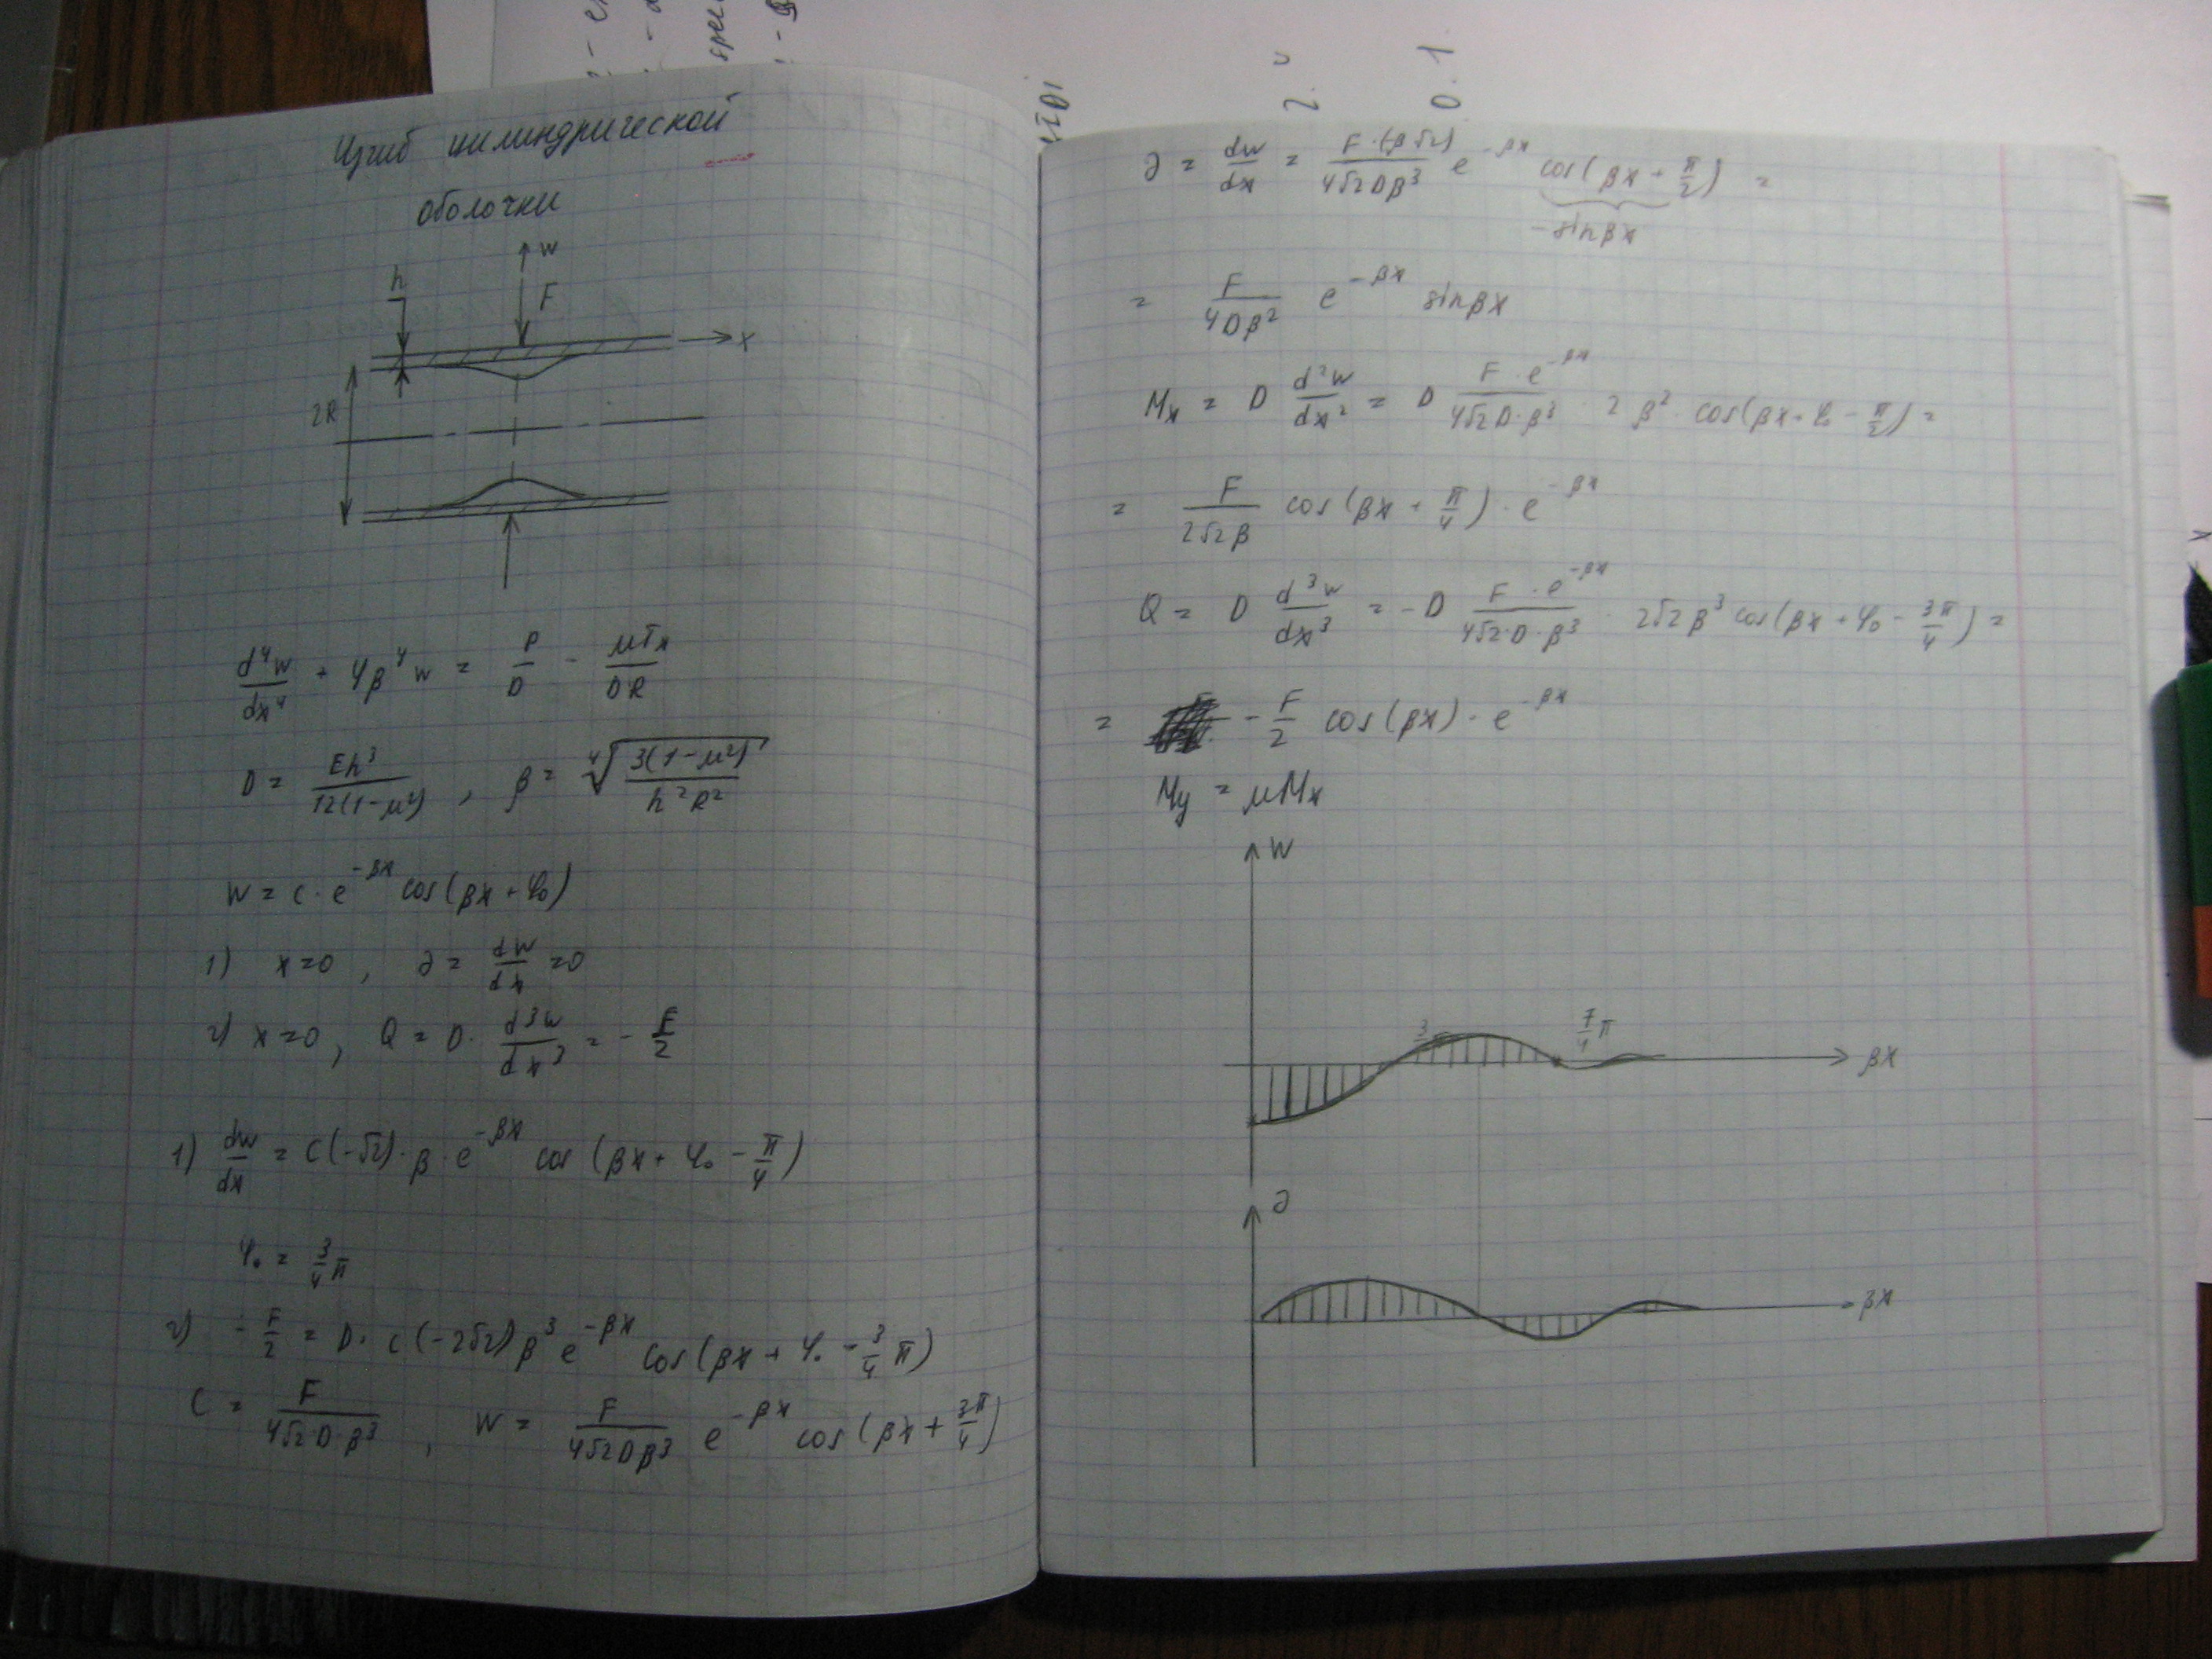 Изгиб цилиндрической
оболочки
w
h
F
x
2R
d⁴w/dx⁴ + 4β⁴w = P/D - μTx/DR
D = Eh³/12(1-μ²) , β = ⁴√(3(1-μ²)/h²R²)
w = c·e^(-βx) cos(βx+φ₀)
1) x=0 , ∂ = dw/dx = 0
2) x=0 , Q = D· d³w/dx³ = - F/2
1) dw/dx = C(-√2)·β·e^(-βx) cos (βx+φ₀ - π/4)
φ₀ = 3/4 π
2) - F/2 = D· c(-2√2)β³e^(-βx) cos(βx+φ₀ - 3/4 π)
C = F/4√2·D·β³ , w = F/4√2Dβ³ e^(-βx) cos(βx + 3π/4)
∂ = dw/dx = F·(-β√2)/4√2Dβ³ e^(-βx) cos(βx + π/2) =
-sinβx
= F/4Dβ² e^(-βx) sinβx
Mx = D d²w/dx² = D F·e^(-βx)/4√2D·β³ · 2β² · cos(βx+φ₀ - π/2) =
= F/2√2β cos(βx + π/4)·e^(-βx)
Q = D d³w/dx³ = -D F·e^(-βx)/4√2·D·β³ · 2√2β³ cos(βx+φ₀ - 3π/4) =
= - F/2 cos(βx)·e^(-βx)
My = μMx
w
7/4 π
βx
∂
βx
2.
0.1